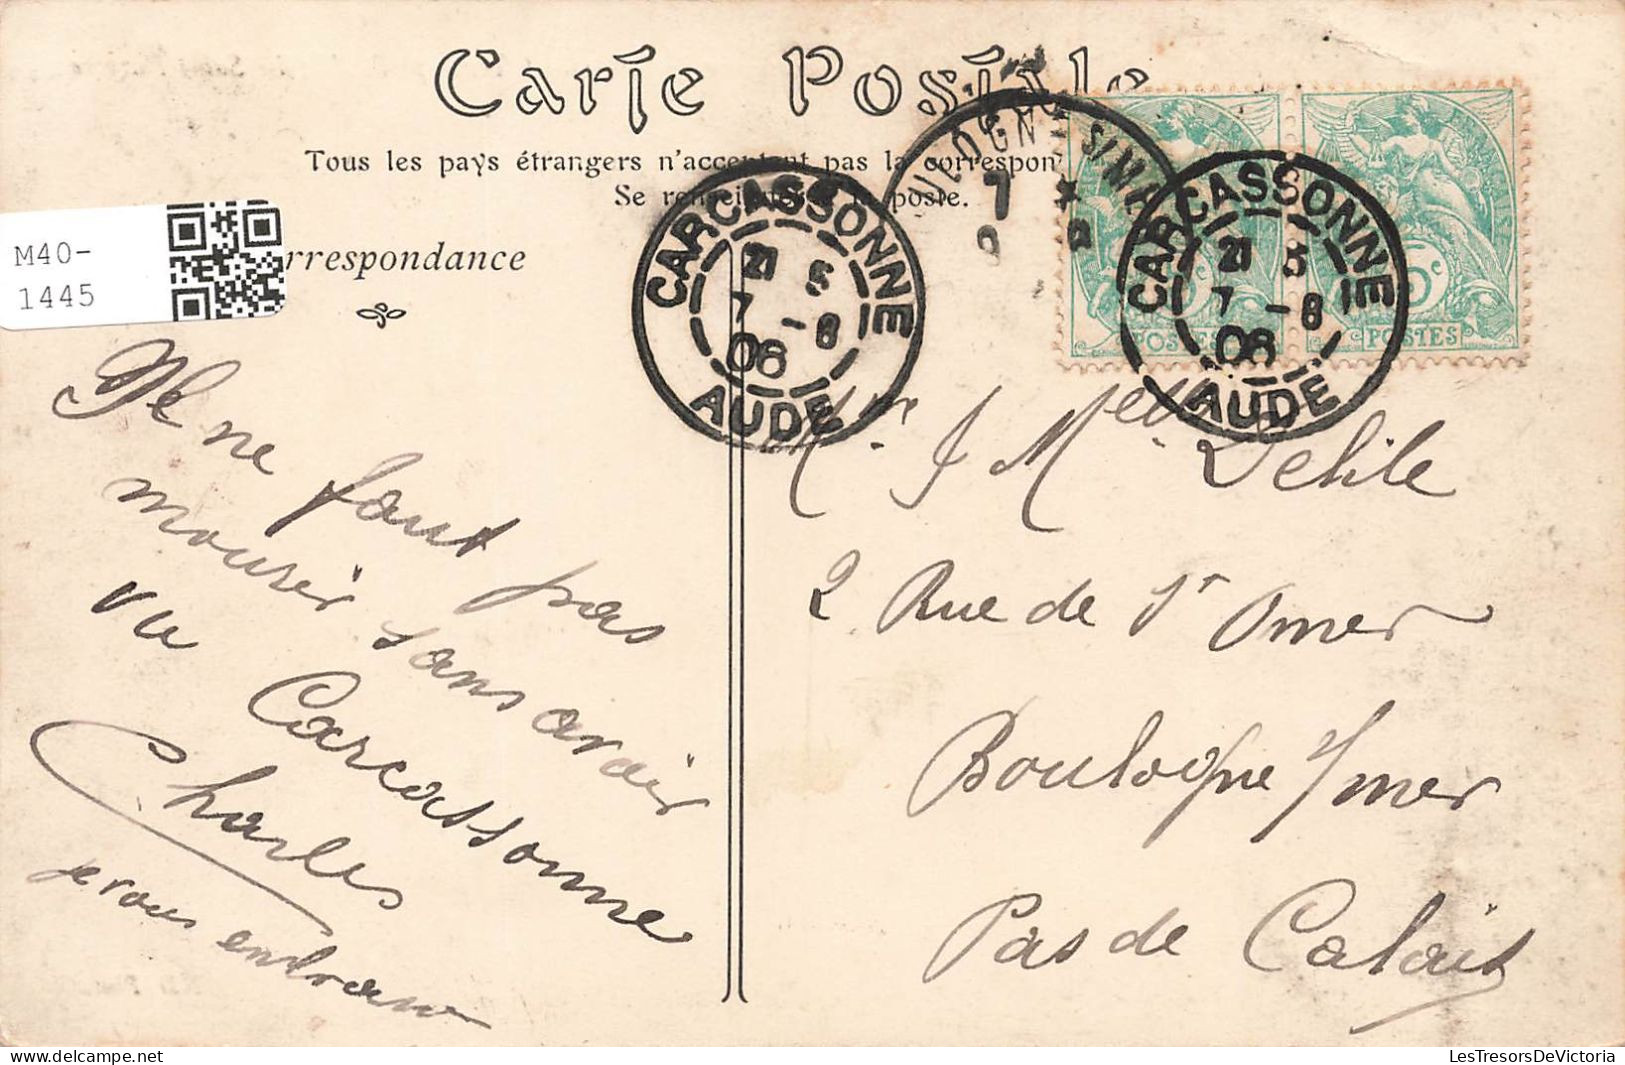 Carte Postale
Tous les pays étrangers n'acceptent pas la correspon
Se renseigner à la poste.
M40-
1445
rrespondance
CARCASSONNE
21 5
7 -8
06
AUDE
ULOGNE S/MER
7
CARCASSONNE
21 5
7 -8
06
AUDE
POSTES
5c
POSTES
Il ne faut pas
mourir sans avoir
vu Carcassonne
Charles
je vous embrasse
Mr J Mell Delile
2 Rue de St Omer
Boulogne s/mer
Pas de Calais
LesTresorsDeVictoria